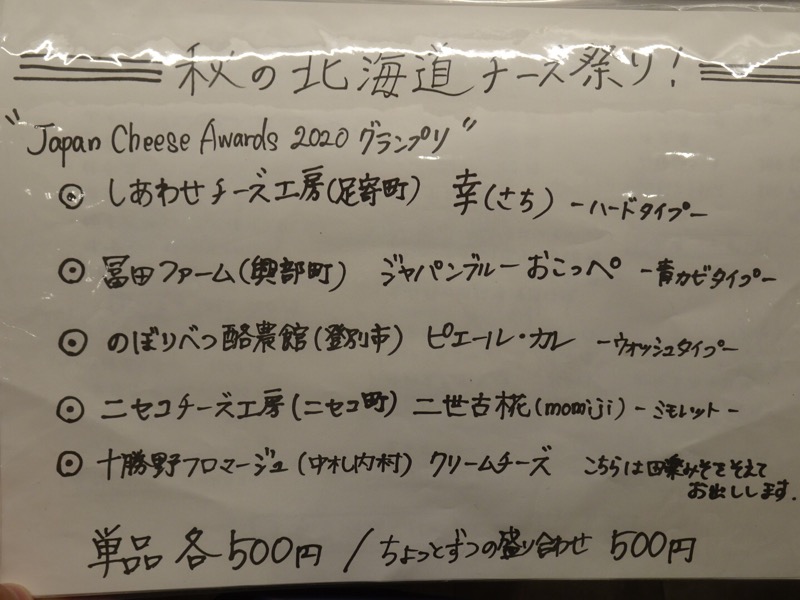 秋の北海道チーズ祭り!
"Japan Cheese Awards 2020 グランプリ"
しあわせチーズ工房(足寄町) 幸(さち) -ハードタイプ-
冨田ファーム(興部町) ジャパンブルーおこっぺ -青カビタイプ-
のぼりべつ酪農館(登別市) ピエール・カレ -ウォッシュタイプ-
ニセコチーズ工房(ニセコ町) 二世古椛(momiji) -ミモレット-
十勝野フロマージュ(中札内村) クリームチーズ こちらは田楽みそをそえて
お出しします.
単品 各500円 / ちょっとずつの盛り合わせ 500円